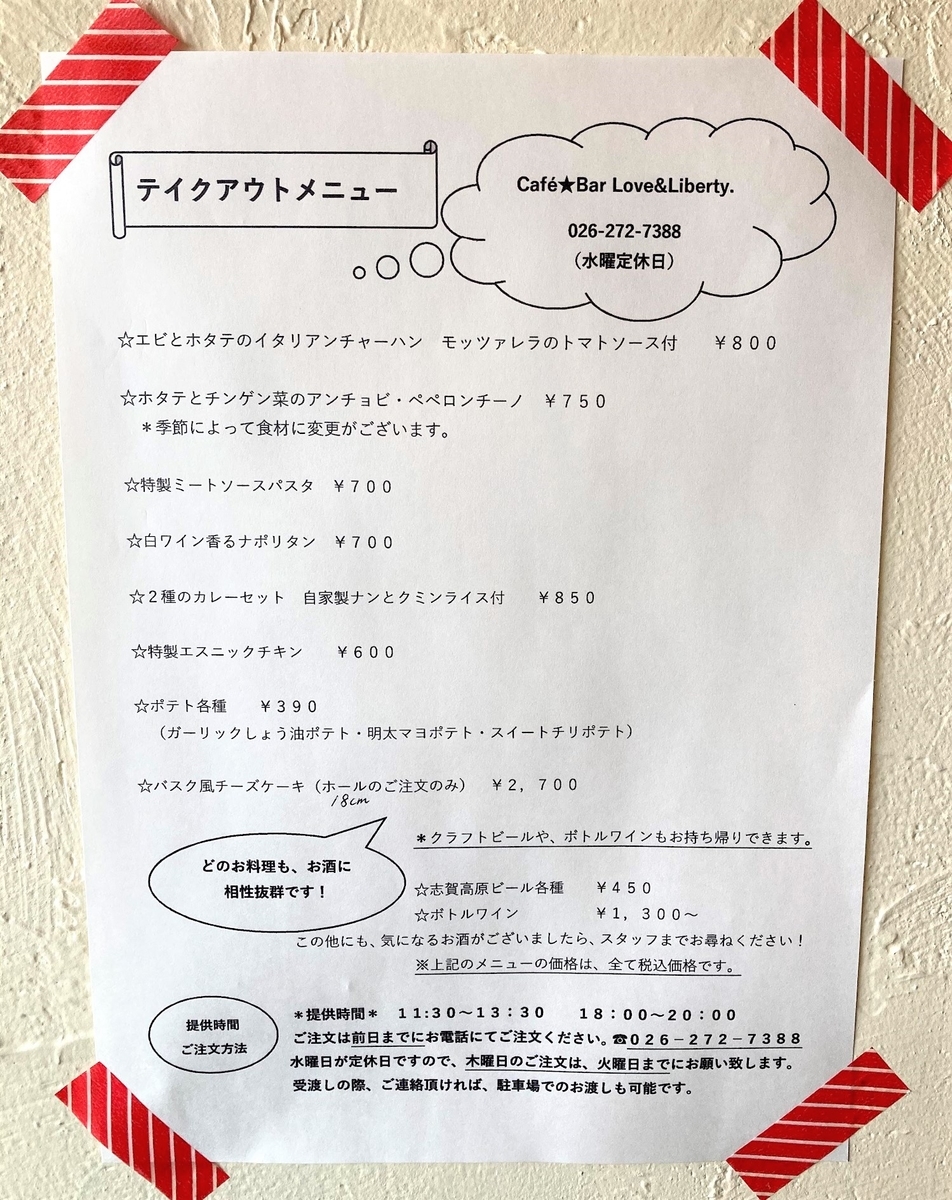 テイクアウトメニュー
Café★Bar Love&Liberty.
026-272-7388
（水曜定休日）
☆エビとホタテのイタリアンチャーハン　モッツァレラのトマトソース付　￥８００
☆ホタテとチンゲン菜のアンチョビ・ペペロンチーノ　￥７５０
＊季節によって食材に変更がございます。
☆特製ミートソースパスタ　￥７００
☆白ワイン香るナポリタン　￥７００
☆２種のカレーセット　自家製ナンとクミンライス付　￥８５０
☆特製エスニックチキン　￥６００
☆ポテト各種　￥３９０
（ガーリックしょう油ポテト・明太マヨポテト・スイートチリポテト）
☆バスク風チーズケーキ（ホールのご注文のみ）　￥２，７００
18cm
＊クラフトビールや、ボトルワインもお持ち帰りできます。
どのお料理も、お酒に
相性抜群です！
☆志賀高原ビール各種　￥４５０
☆ボトルワイン　￥１，３００～
この他にも、気になるお酒がございましたら、スタッフまでお尋ねください！
※上記のメニューの価格は、全て税込価格です。
提供時間
ご注文方法
＊提供時間＊　１１:３０～１３：３０　１８：００～２０：００
ご注文は前日までにお電話にてご注文ください。☎０２６－２７２－７３８８
水曜日が定休日ですので、木曜日のご注文は、火曜日までにお願い致します。
受渡しの際、ご連絡頂ければ、駐車場でのお渡しも可能です。